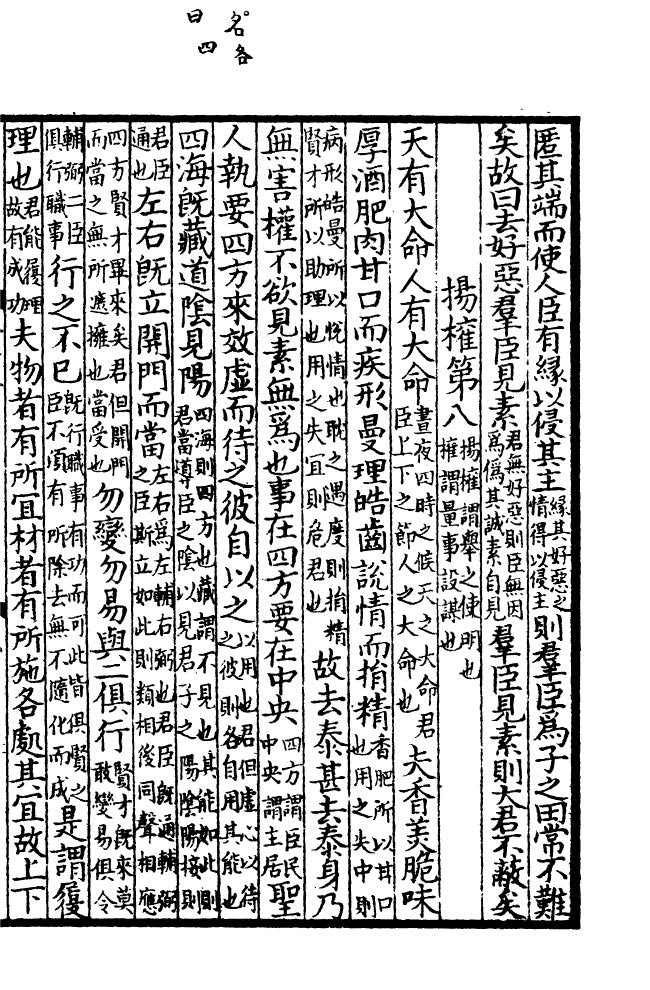 名各
曰四
匿其端而使人臣有緣以侵其主緣其好惡之情得以侵主則羣臣爲子之田常不難
矣故曰去好惡羣臣見素君無好惡則臣無因爲僞其誠素自見羣臣見素則大君不蔽矣
揚榷第八揚榷謂舉之使明也榷謂量事設謀也
天有大命人有大命晝夜四時之候天之大命君臣上下之節人之大命也夫香美脆味
厚酒肥肉甘口而疾形曼理皓齒說情而捐精香肥所以甘口也用之失中則
病形皓曼所以悅情也耽之過度則捐精賢才所以助理也用之失宜則危君也故去泰甚去泰身乃
無害權不欲見素無爲也事在四方要在中央四方謂臣民中央謂主居聖
人執要四方來效虛而待之彼自以之以用也君但虛心以待之彼則各自用其能也
四海旣藏道陰見陽四海則四方也藏謂不見也其能如此則君當導臣之陰以見君子之陽陰陽接則
君臣通也左右旣立開門而當左右爲左輔右弼也君臣旣通輔弼之臣斯立如此則類相後同聲相應
四方賢才畢來矣君但開門而當之無所遮擁也當受也勿變勿易與二俱行賢才旣來莫敢變易俱令
輔弼二臣俱行職事行之不已旣行職事有功而可此皆俱賢之臣不須有所除去無不隨化而成是謂履
理也君能履理故有成功夫物者有所宜材者有所施各處其宜故上下